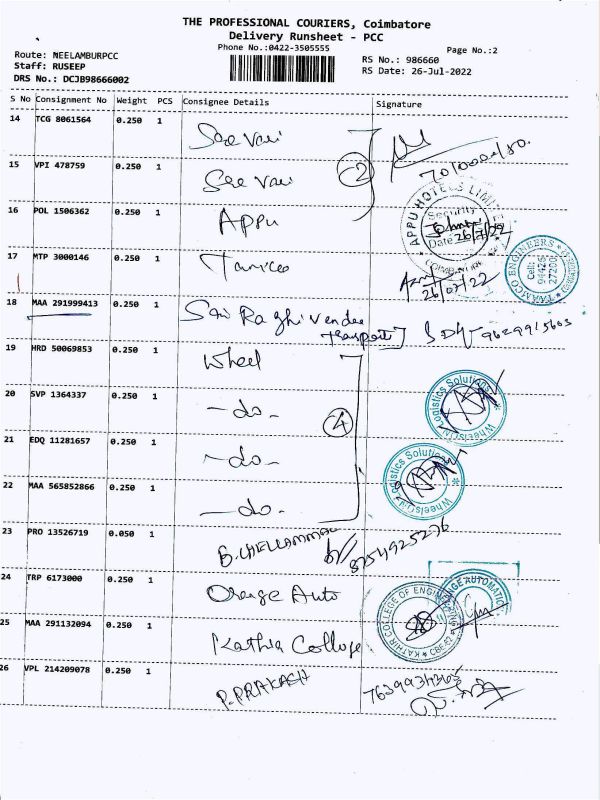 THE PROFESSIONAL COURIERS, Coimbatore
Delivery Runsheet - PCC
Phone No.:0422-3505555
Page No.:2
Route: NEELAMBURPCC
Staff: RUSEEP
DRS No.: DCJB98666002
RS No.: 986660
RS Date: 26-Jul-2022
S No Consignment No Weight PCS Consignee Details Signature
14 TCG 8061564 0.250 1 Sree Vari
15 VPI 478759 0.250 1 Sree Vari
2
16 POL 1506362 0.250 1 Appu
APPU HOTELS LIMITED
Security
Date 26/7/22
COIMBATORE
17 MTP 3000146 0.250 1 Tamico
26/07/22
TARAMCO ENGINEERS
Cell: 94426 27200
18 MAA 291999413 0.250 1 Sri Raghavendra
Transport 9629915603
19 HRD 50069853 0.250 1 Wheel
20 SVP 1364337 0.250 1 -do-
4
Wheels Logistics Solutions
21 EDQ 11281657 0.250 1 -do-
Wheels Logistics Solutions
22 MAA 565852866 0.250 1 -do-
23 PRO 13526719 0.050 1 B. CHELLAMMAL 8754925276
24 TRP 6173000 0.250 1 Orange Auto
ORANGE AUTOMATIC
25 MAA 291132094 0.250 1 Kathir College
KATHIR COLLEGE OF ENGINEERING
26 VPL 214209078 0.250 1 P. PRAKASH